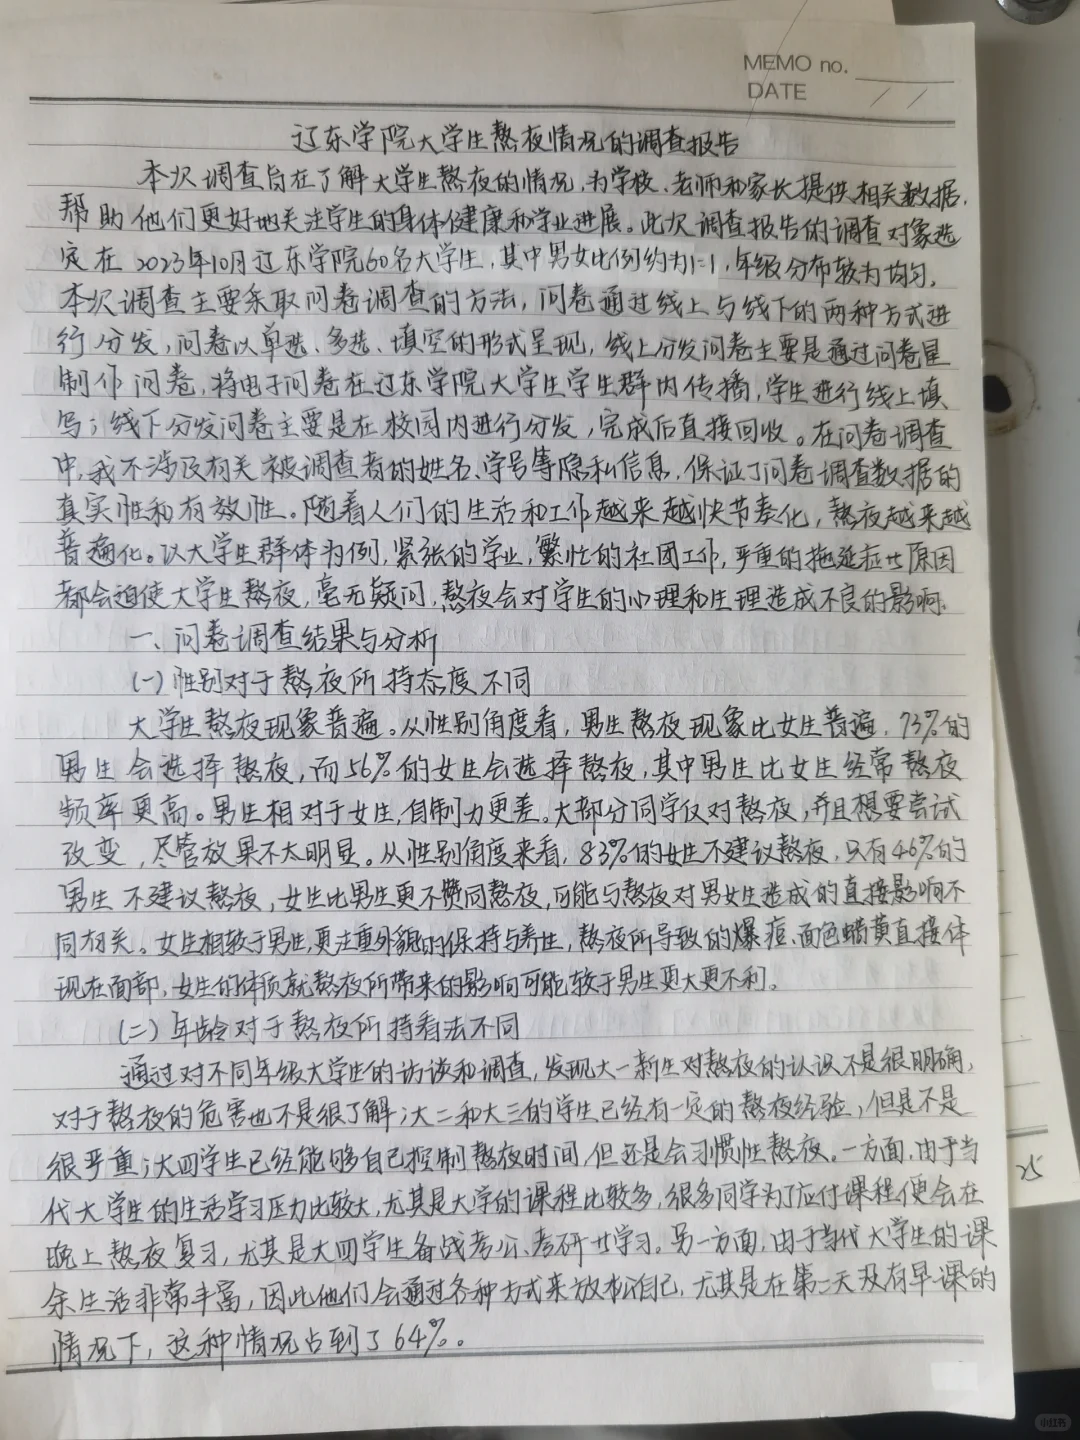 MEMO no.
DATE / /
辽东学院大学生熬夜情况的调查报告
本次调查旨在了解大学生熬夜的情况,为学校、老师和家长提供相关数据,
帮助他们更好地关注学生的身体健康和学业进展。此次调查报告的调查对象选
定在2023年10月辽东学院60名大学生,其中男女比例约为1:1,年级分布较为均匀。
本次调查主要采取问卷调查的方法,问卷通过线上与线下的两种方式进
行分发,问卷以单选、多选、填空的形式呈现,线上分发问卷主要是通过问卷星
制作问卷,将电子问卷在辽东学院大学生学生群内传播,学生进行线上填
写;线下分发问卷主要是在校园内进行分发,完成后直接回收。在问卷调查
中,我不涉及有关被调查者的姓名、学号等隐私信息,保证了问卷调查数据的
真实性和有效性。随着人们的生活和工作越来越快节奏化,熬夜越来越
普遍化。以大学生群体为例,紧张的学业,繁忙的社团工作,严重的拖延症廿原因
都会迫使大学生熬夜,毫无疑问,熬夜会对学生的心理和生理造成不良的影响.
一、问卷调查结果与分析
(一)性别对于熬夜所持态度不同
大学生熬夜现象普遍。从性别角度看,男生熬夜现象比女生普遍,73%的
男生会选择熬夜,而56%的女生会选择熬夜,其中男生比女生经常熬夜
频率更高。男生相对于女生,自制力更差。大部分同学仅对熬夜,并且想要尝试
改变,尽管效果不太明显。从性别角度来看,83%的女生不建议熬夜,只有46%的
男生不建议熬夜,女生比男生更不赞同熬夜,可能与熬夜对男女生造成的直接影响不
同有关。女生相较于男生,更注重外貌的保持与养性,熬夜所导致的爆痘、面色蜡黄直接体
现在面部,女生的体质就熬夜所带来的影响可能较于男生更大更不利。
(二)年龄对于熬夜所持看法不同
通过对不同年级大学生的访谈和调查,发现大一新生对熬夜的认识不是很明确,
对于熬夜的危害也不是很了解;大二和大三的学生已经有一定的熬夜经验,但是不是
很严重;大四学生已经能够自己控制熬夜时间,但还是会习惯性熬夜。一方面,由于当
代大学生的生活学习压力比较大,尤其是大学的课程比较多,很多同学为了应付课程便会在
晚上熬夜复习,尤其是大四学生备战考公、考研廿学习。另一方面,由于当代大学生的课
余生活非常丰富,因此他们会通过各种方式来放松自己,尤其是在第二天没有早课的
情况下,这种情况占到了64%。
25
小红书